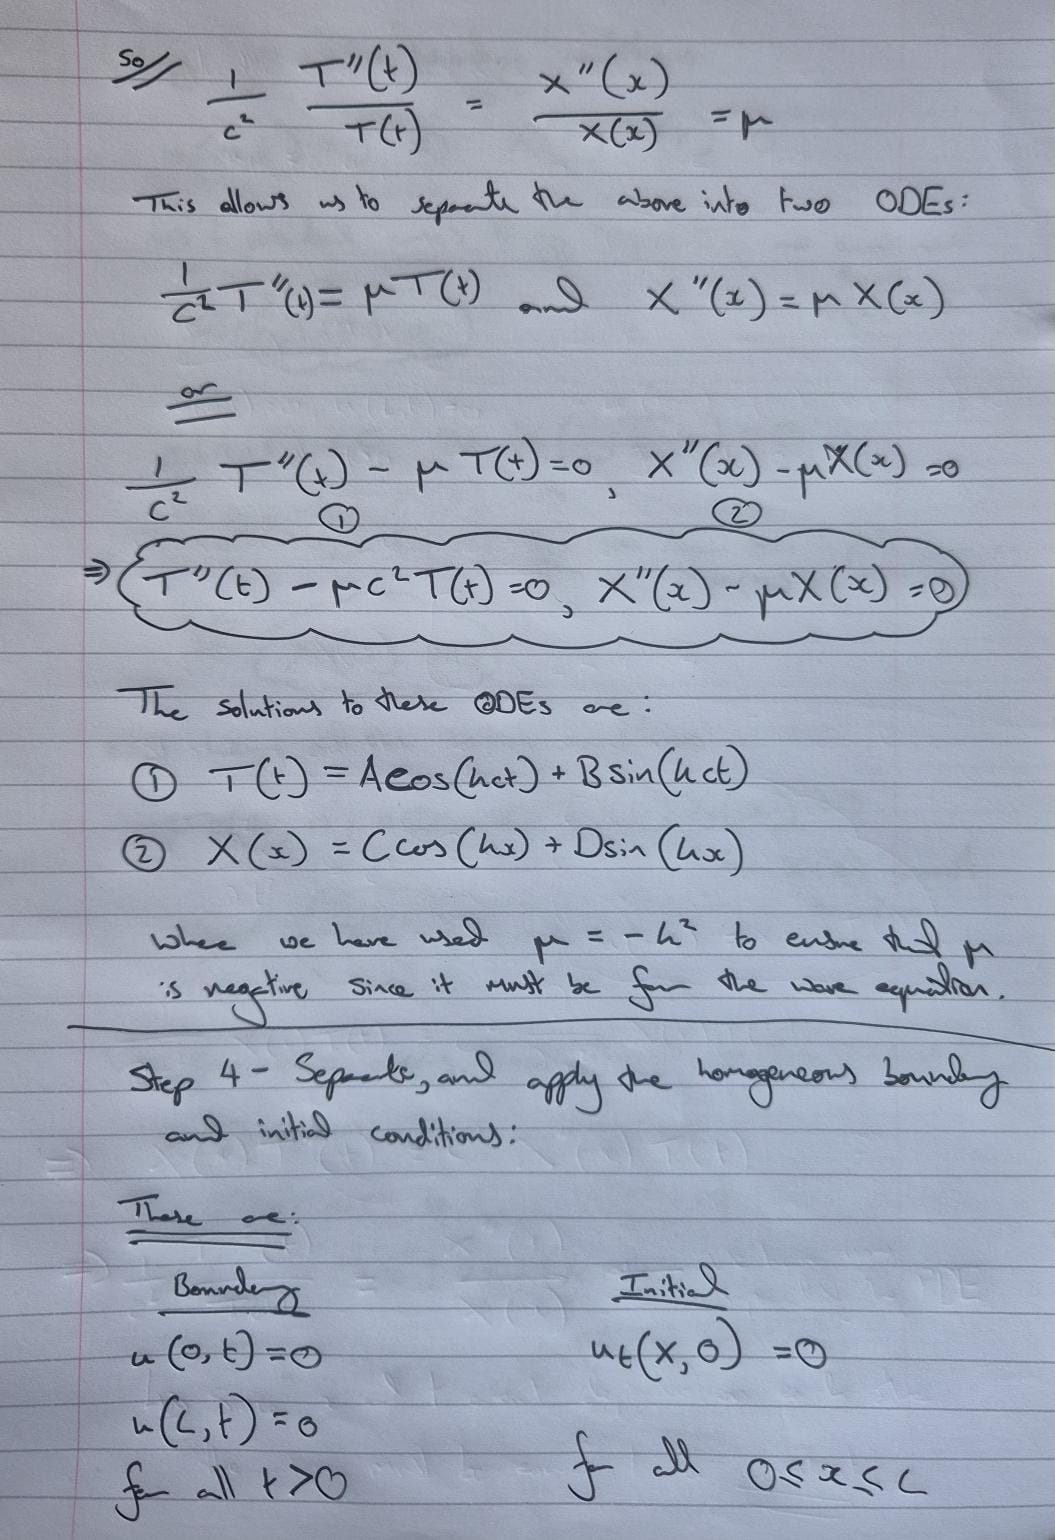 So// 1/c² T''(t)/T(t) = X''(x)/X(x) = μ
This allows us to separate the above into two ODEs:
1/c² T''(t) = μT(t) and X''(x) = μX(x)
or
1/c² T''(t) - μT(t) = 0, X''(x) - μX(x) = 0
① ②
⇒ T''(t) - μc²T(t) = 0, X''(x) - μX(x) = 0
The solutions to these ODEs are:
① T(t) = Acos(kct) + Bsin(kct)
② X(x) = Ccos(kx) + Dsin(kx)
where we have used μ = -k² to ensure that μ
is negative since it must be for the wave equation.
Step 4 - Separate, and apply the homogeneous boundary
and initial conditions:
These are:
Boundary Initial
u(0,t) = 0 ut(x,0) = 0
u(L,t) = 0
for all t > 0 for all 0 ≤ x ≤ L